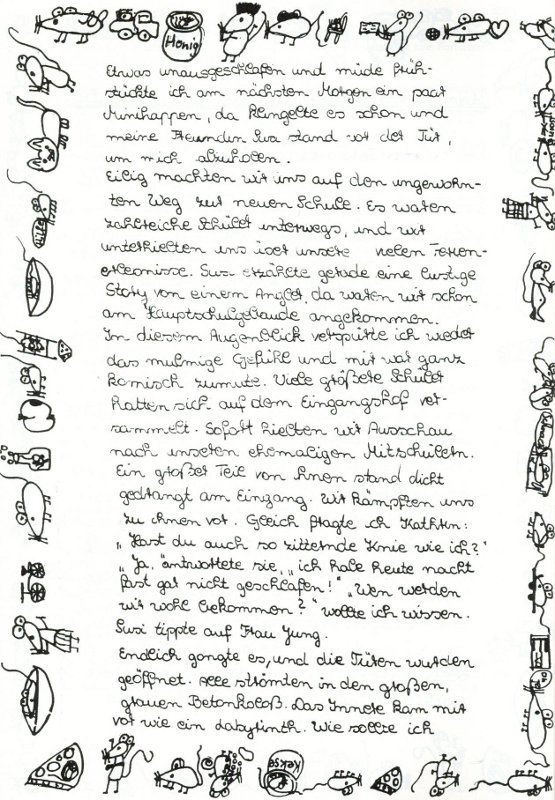 Honig
Etwas unausgeschlafen und müde früh-
stückte ich am nächsten Morgen ein paar
Minihappen, da klingelte es schon und
meine Freundin Susi stand vor der Tür,
um mich abzuholen.
Eilig machten wir uns auf den ungewohn-
ten Weg zur neuen Schule. Es waren
zahlreiche Schüler unterwegs, und wir
unterhielten uns über unsere vielen Ferien-
erlebnisse. Susi erzählte gerade eine lustige
Story von einem Angler, da waren wir schon
am Hauptschulgebäude angekommen.
In diesem Augenblick verspürte ich wieder
das mulmige Gefühl und mir war ganz
komisch zumute. Viele größere Schüler
hatten sich auf dem Eingangshof ver-
sammelt. Sofort hielten wir Ausschau
nach unseren ehemaligen Mitschülern.
Ein großer Teil von ihnen stand dicht
gedrängt am Eingang. Wir kämpften uns
zu ihnen vor. Gleich fragte ich Kathrin:
„Hast du auch so zitternde Knie wie ich?"
„Ja," antwortete sie, „ich habe heute nacht
fast gar nicht geschlafen!" „Wen werden
wir wohl bekommen?" wollte ich wissen.
Susi tippte auf Frau Jung.
Endlich gongte es, und die Türen wurden
geöffnet. Alle strömten in den großen,
grauen Betonkoloß. Das Innere kam mir
vor wie ein Labyrinth. Wie sollte ich
Kekse